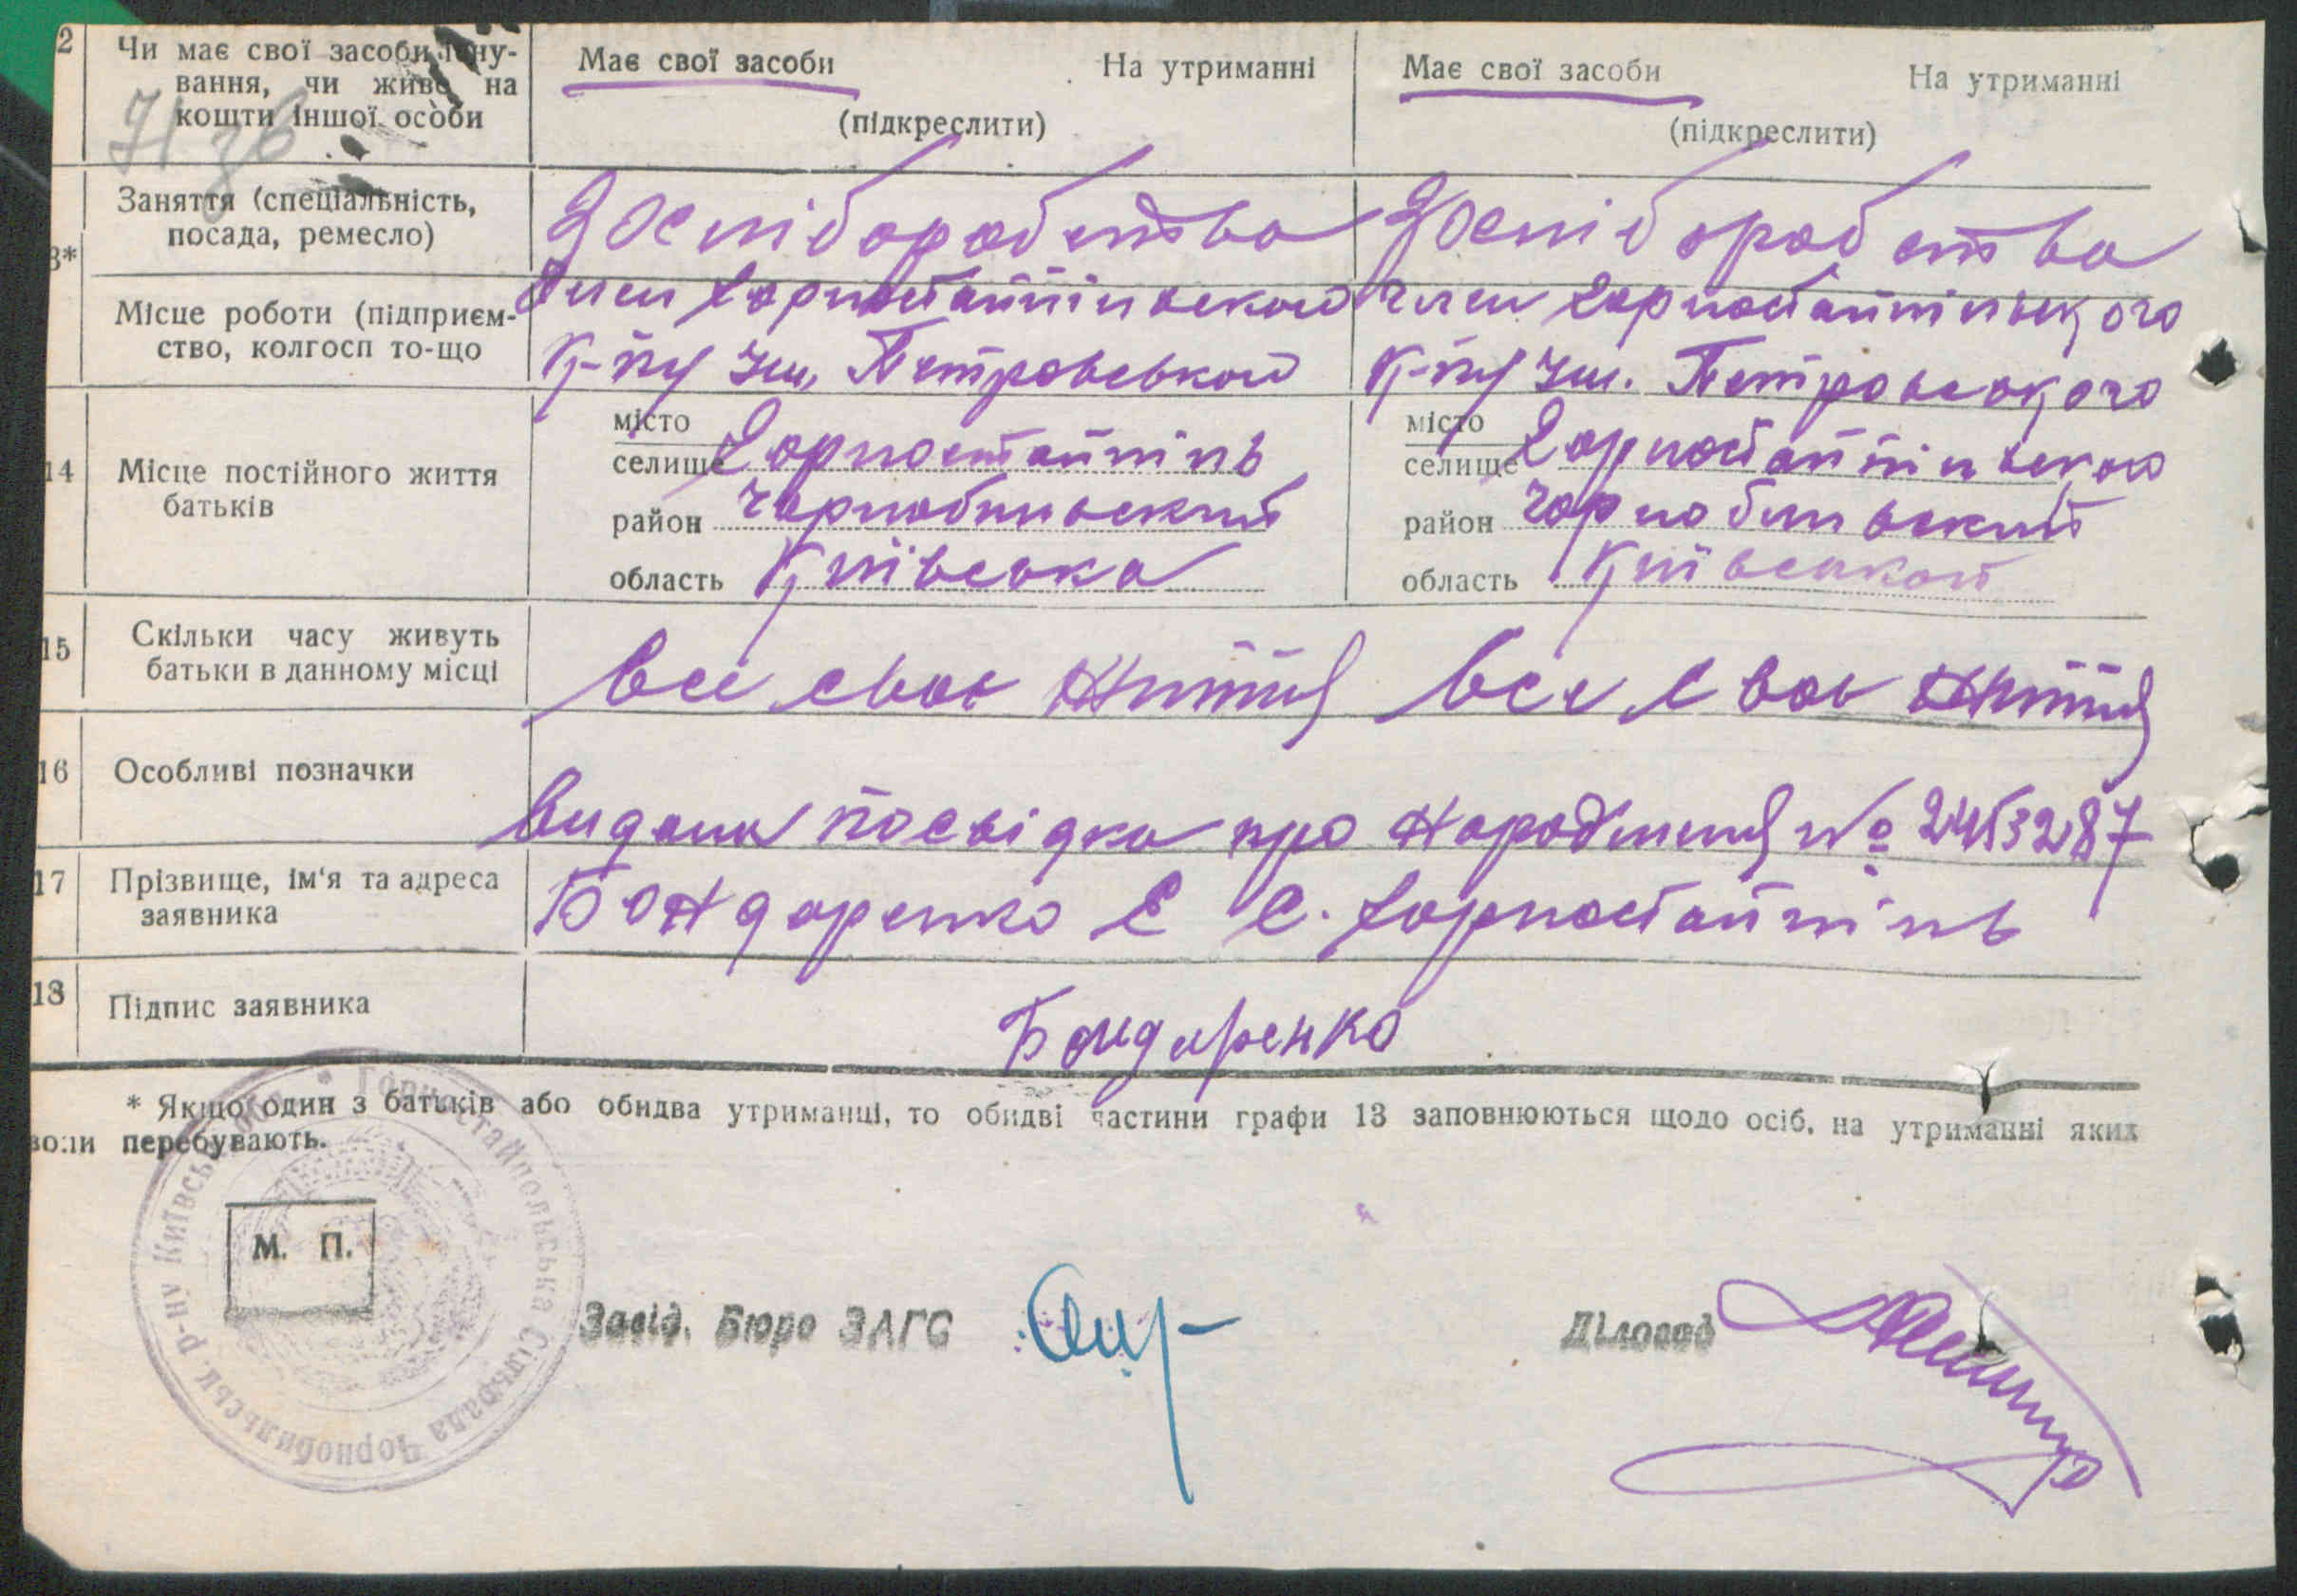 2 Чи має свої засоби існу- Має свої засоби На утриманні Має свої засоби На утриманні
вання, чи живе на
кошти іншої особи (підкреслити) (підкреслити)
Заняття (спеціальність,
посада, ремесло)
3*
член Горностайпільского
Місце роботи (підприєм-
ство, колгосп то-що
к-пу Ім. Петровського к-пу Ім. Петровського
місто місто
селище Горностайпіль селище
14 Місце постійного життя
батьків
район Чорнобильский район Чорнобильский
область Київська область
15 Скільки часу живуть
батьки в данному місці
все своє життя все своє життя
16 Особливі позначки
Видана посвідка про народження № 2453287
17 Прізвище, ім'я та адреса
заявника
Бондаренко Є С. Горностайпіль
18 Підпис заявника Бондаренко
* Якщо один з батьків або обидва утриманці, то обидві частини графи 13 заповнюються щодо осіб, на утриманні яких
вони перебувають.
Горностайпольська Сільрада Чорнобильськ. р-ну Київськ.
М. П.
Завід. Бюро ЗАГС Діловод